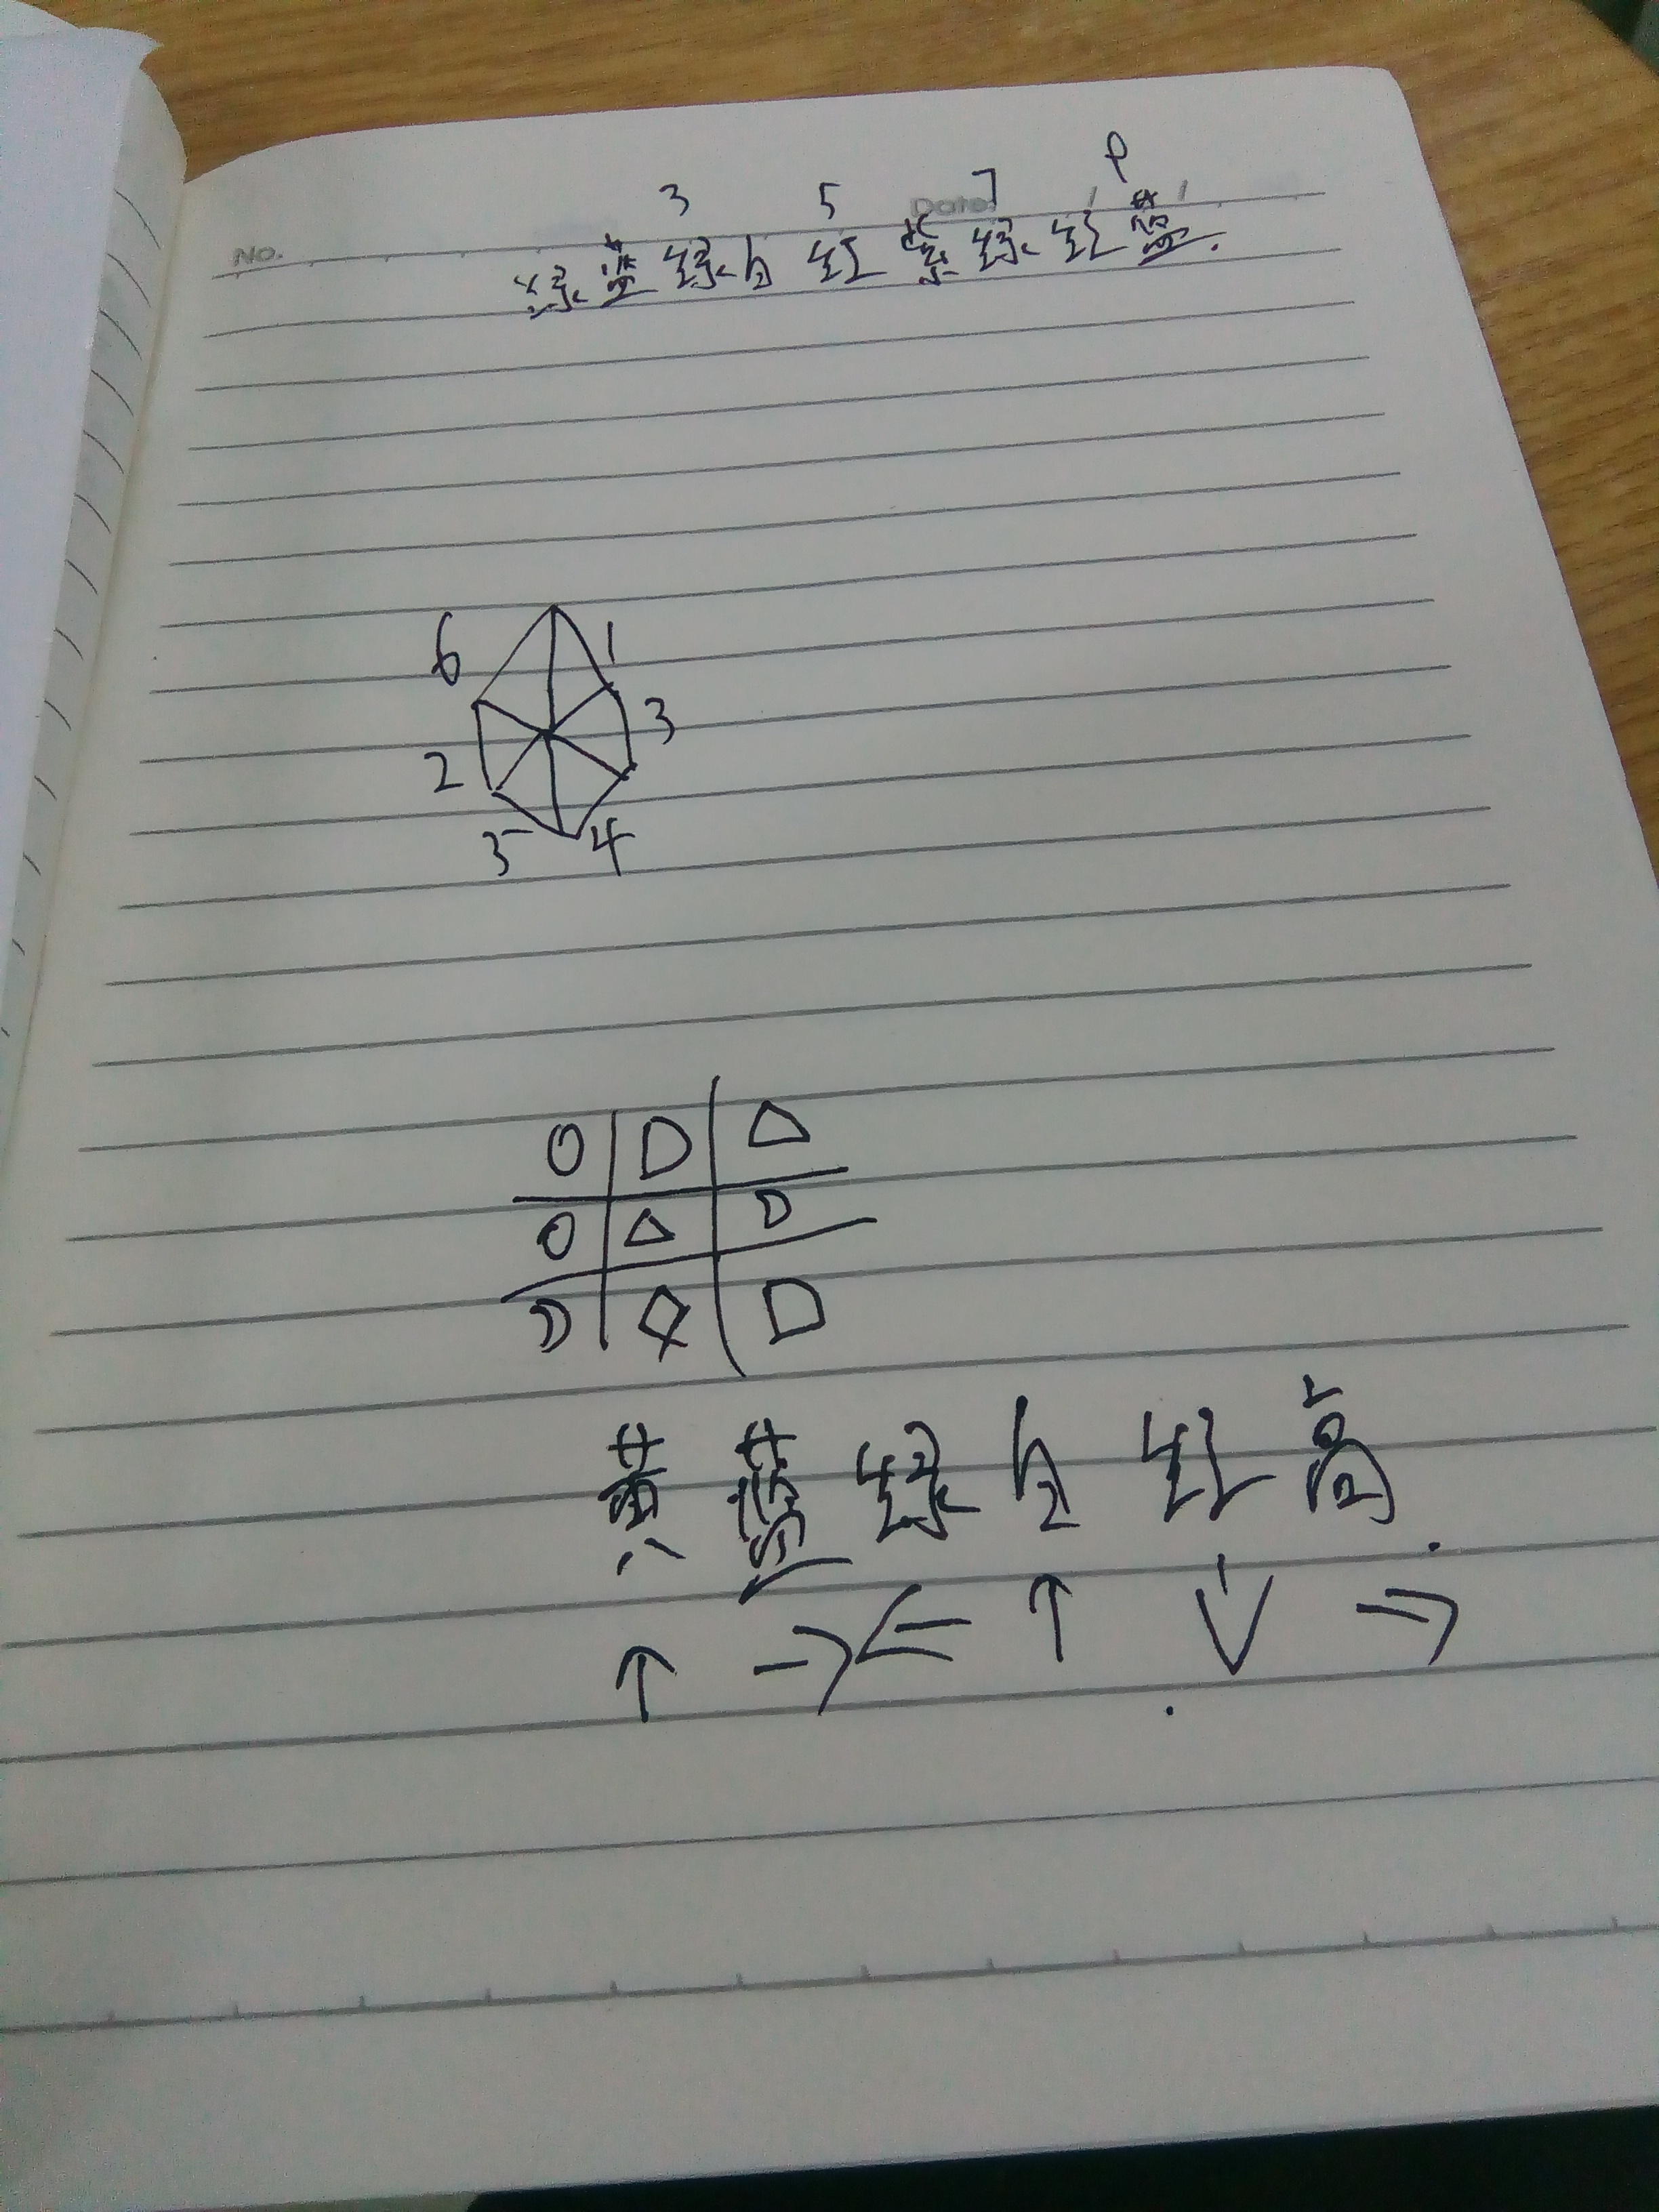 3 5 7 9
No. Date / /
绿蓝绿白红紫绿红蓝.
6 1
3
2
5 4
黄蓝绿白红高.
↑ → ← ↑ ↓ →